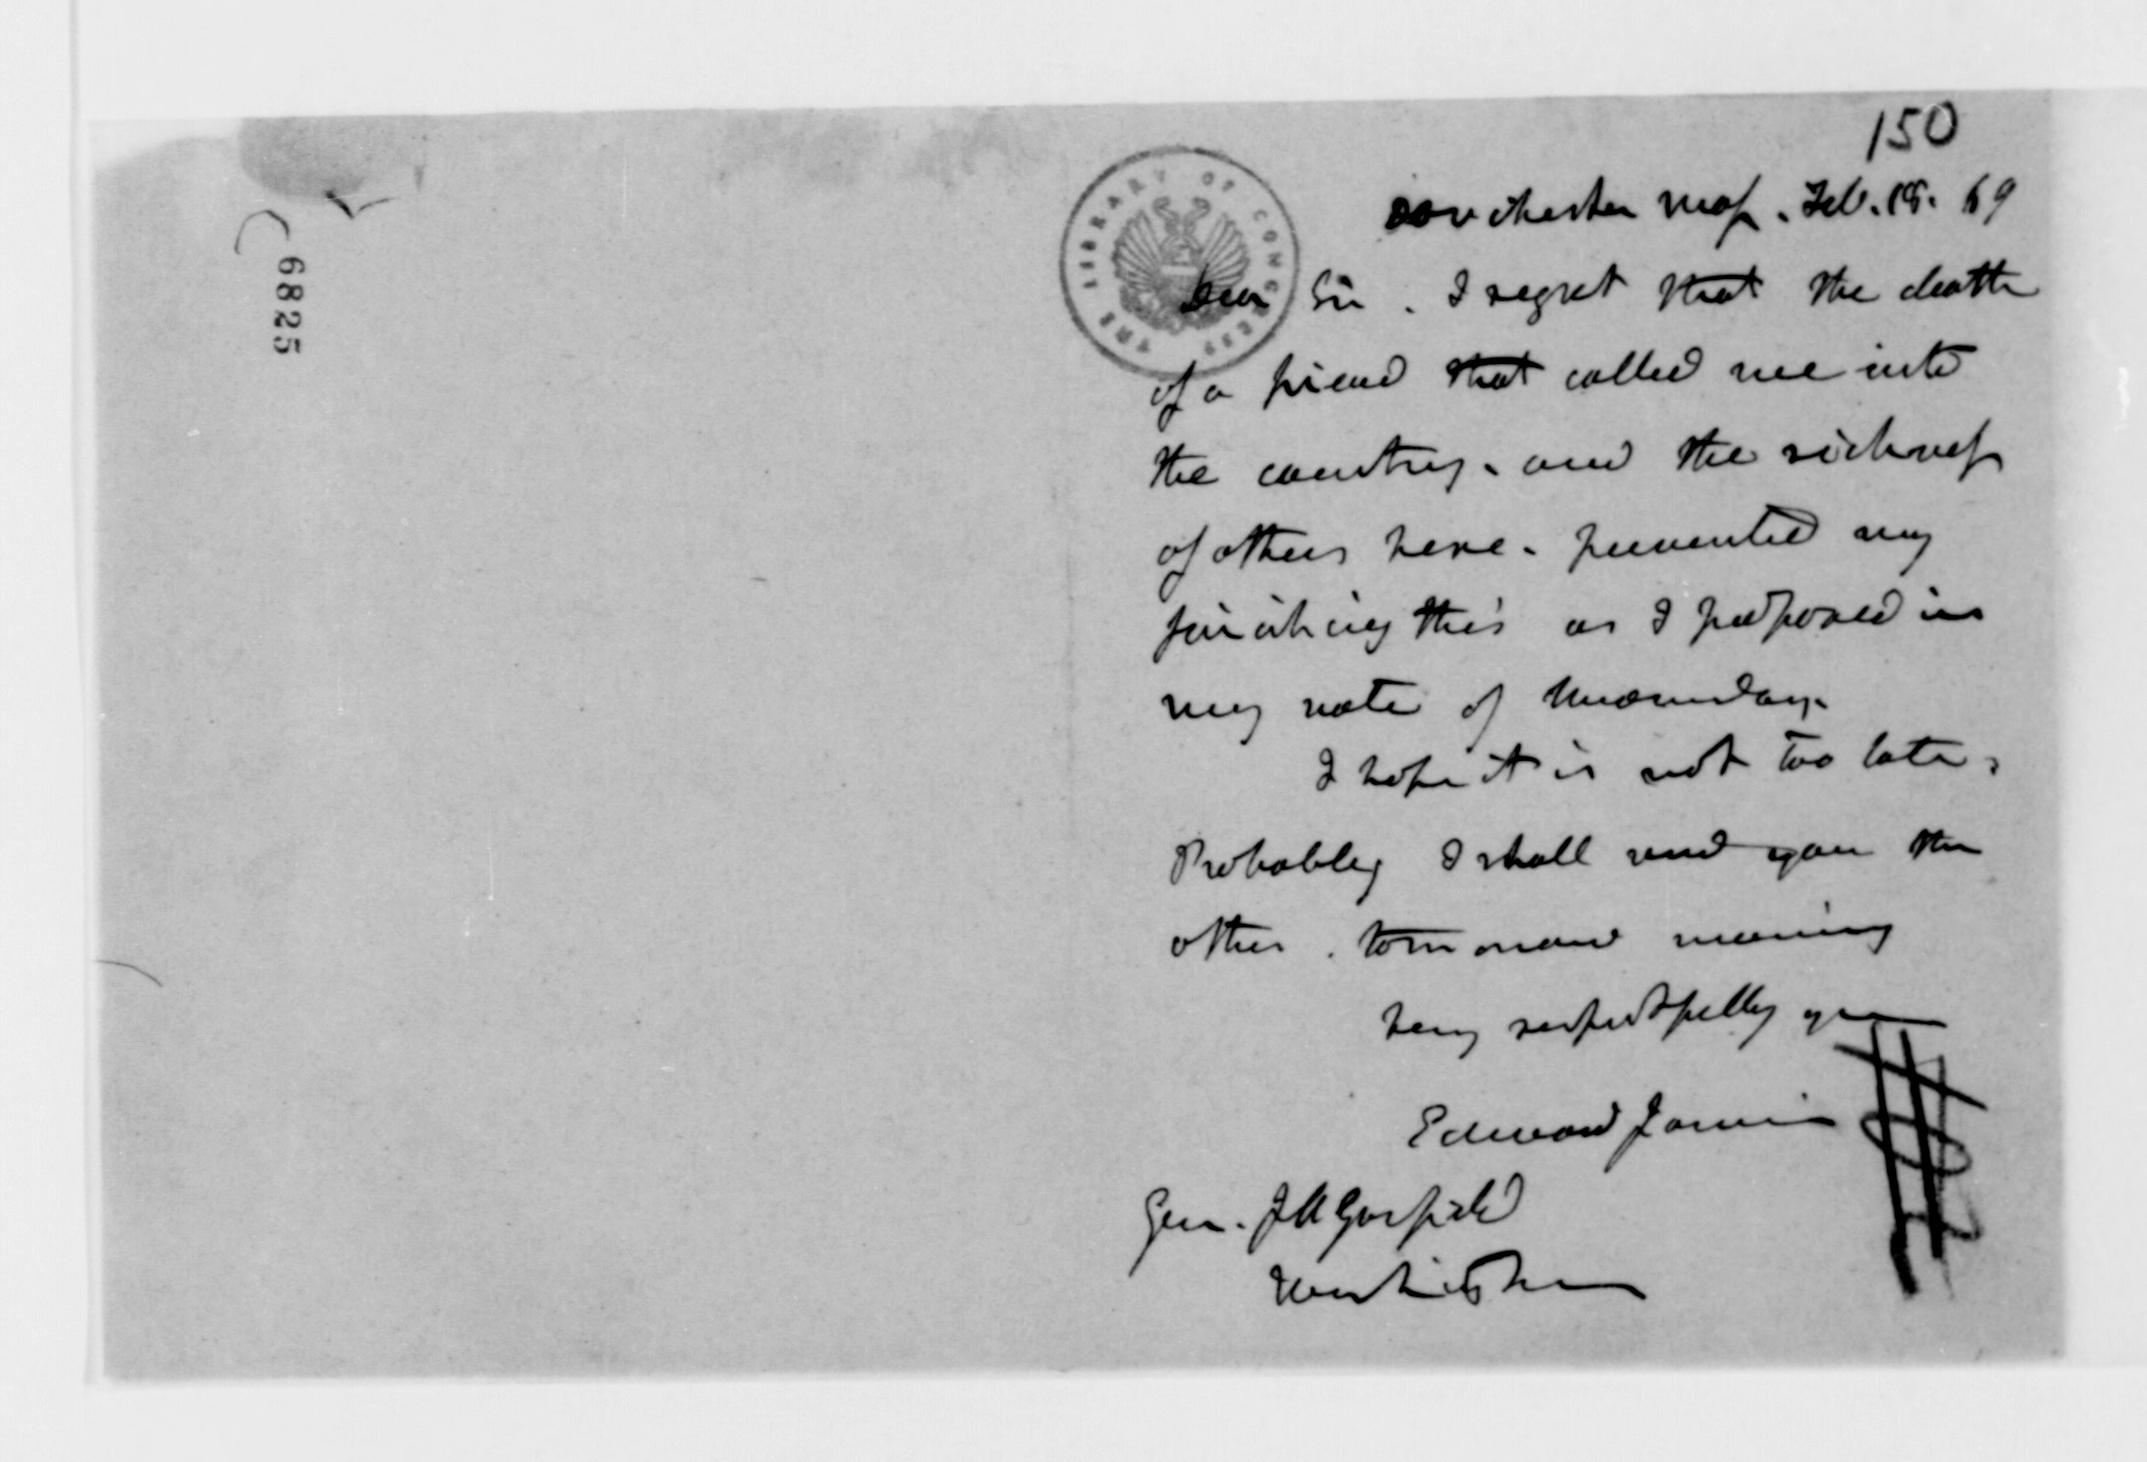 150
Dorchester Mass. Feb. 18. 69
Dear Sir. I regret that the death
of a friend that called me into
the country. and the sickness
of others here. prevented my
finishing this as I purposed in
my note of Wednesday.
I hope it is not too late.
Probably I shall send you the
other. tommorow morning
Very respectfully yours
Edward Jarvis
Gen. J A Garfield
Washington
THE LIBRARY OF CONGRESS
6825